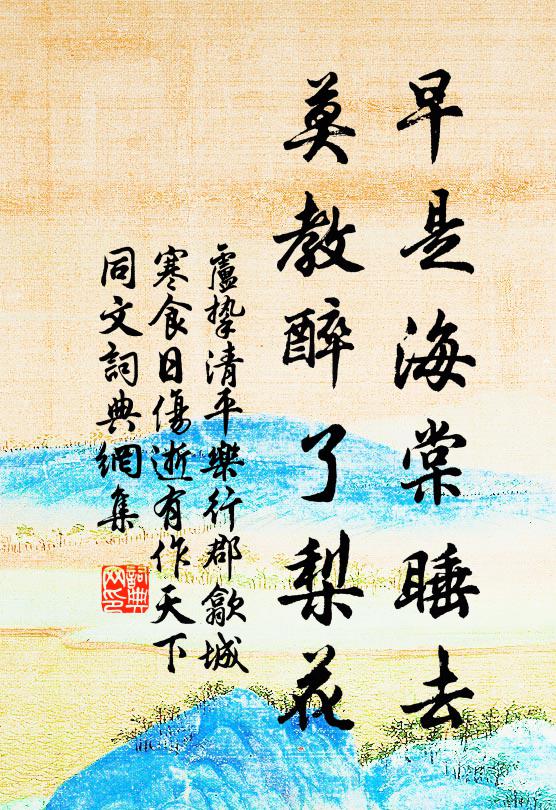 早是海棠睡去
莫教醉了梨花
盧摯清平樂行郡歙城
寒食日傷逝有作天下
同文詞典網集
詞典
网印